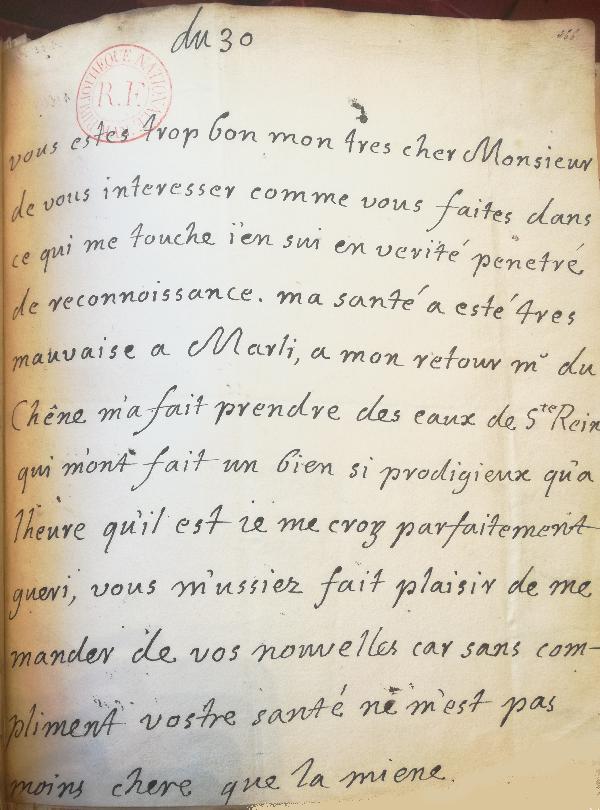 du 30
166
BIBLIOTHEQUE NATIONALE
R.F.
vous estes trop bon mon tres cher Monsieur
de vous interesser comme vous faites dans
ce qui me touche i'en sui en verité penetré
de reconnoissance. ma santé a esté tres
mauvaise a Marli, a mon retour mr du
Chêne m'a fait prendre des eaux de Ste Rein
qui m'ont fait un bien si prodigieux qu'a
lheure qu'il est ie me croy parfaitement
gueri, vous m'ussiez fait plaisir de me
mander de vos nouvelles car sans com-
pliment vostre santé ne m'est pas
moins chere que la miene.